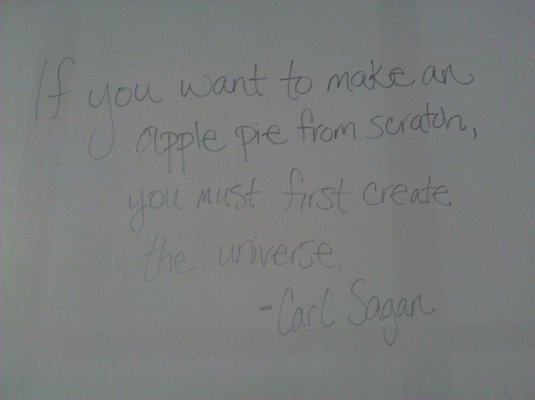 If you want to make an
apple pie from scratch,
you must first create
the universe.
-Carl Sagan